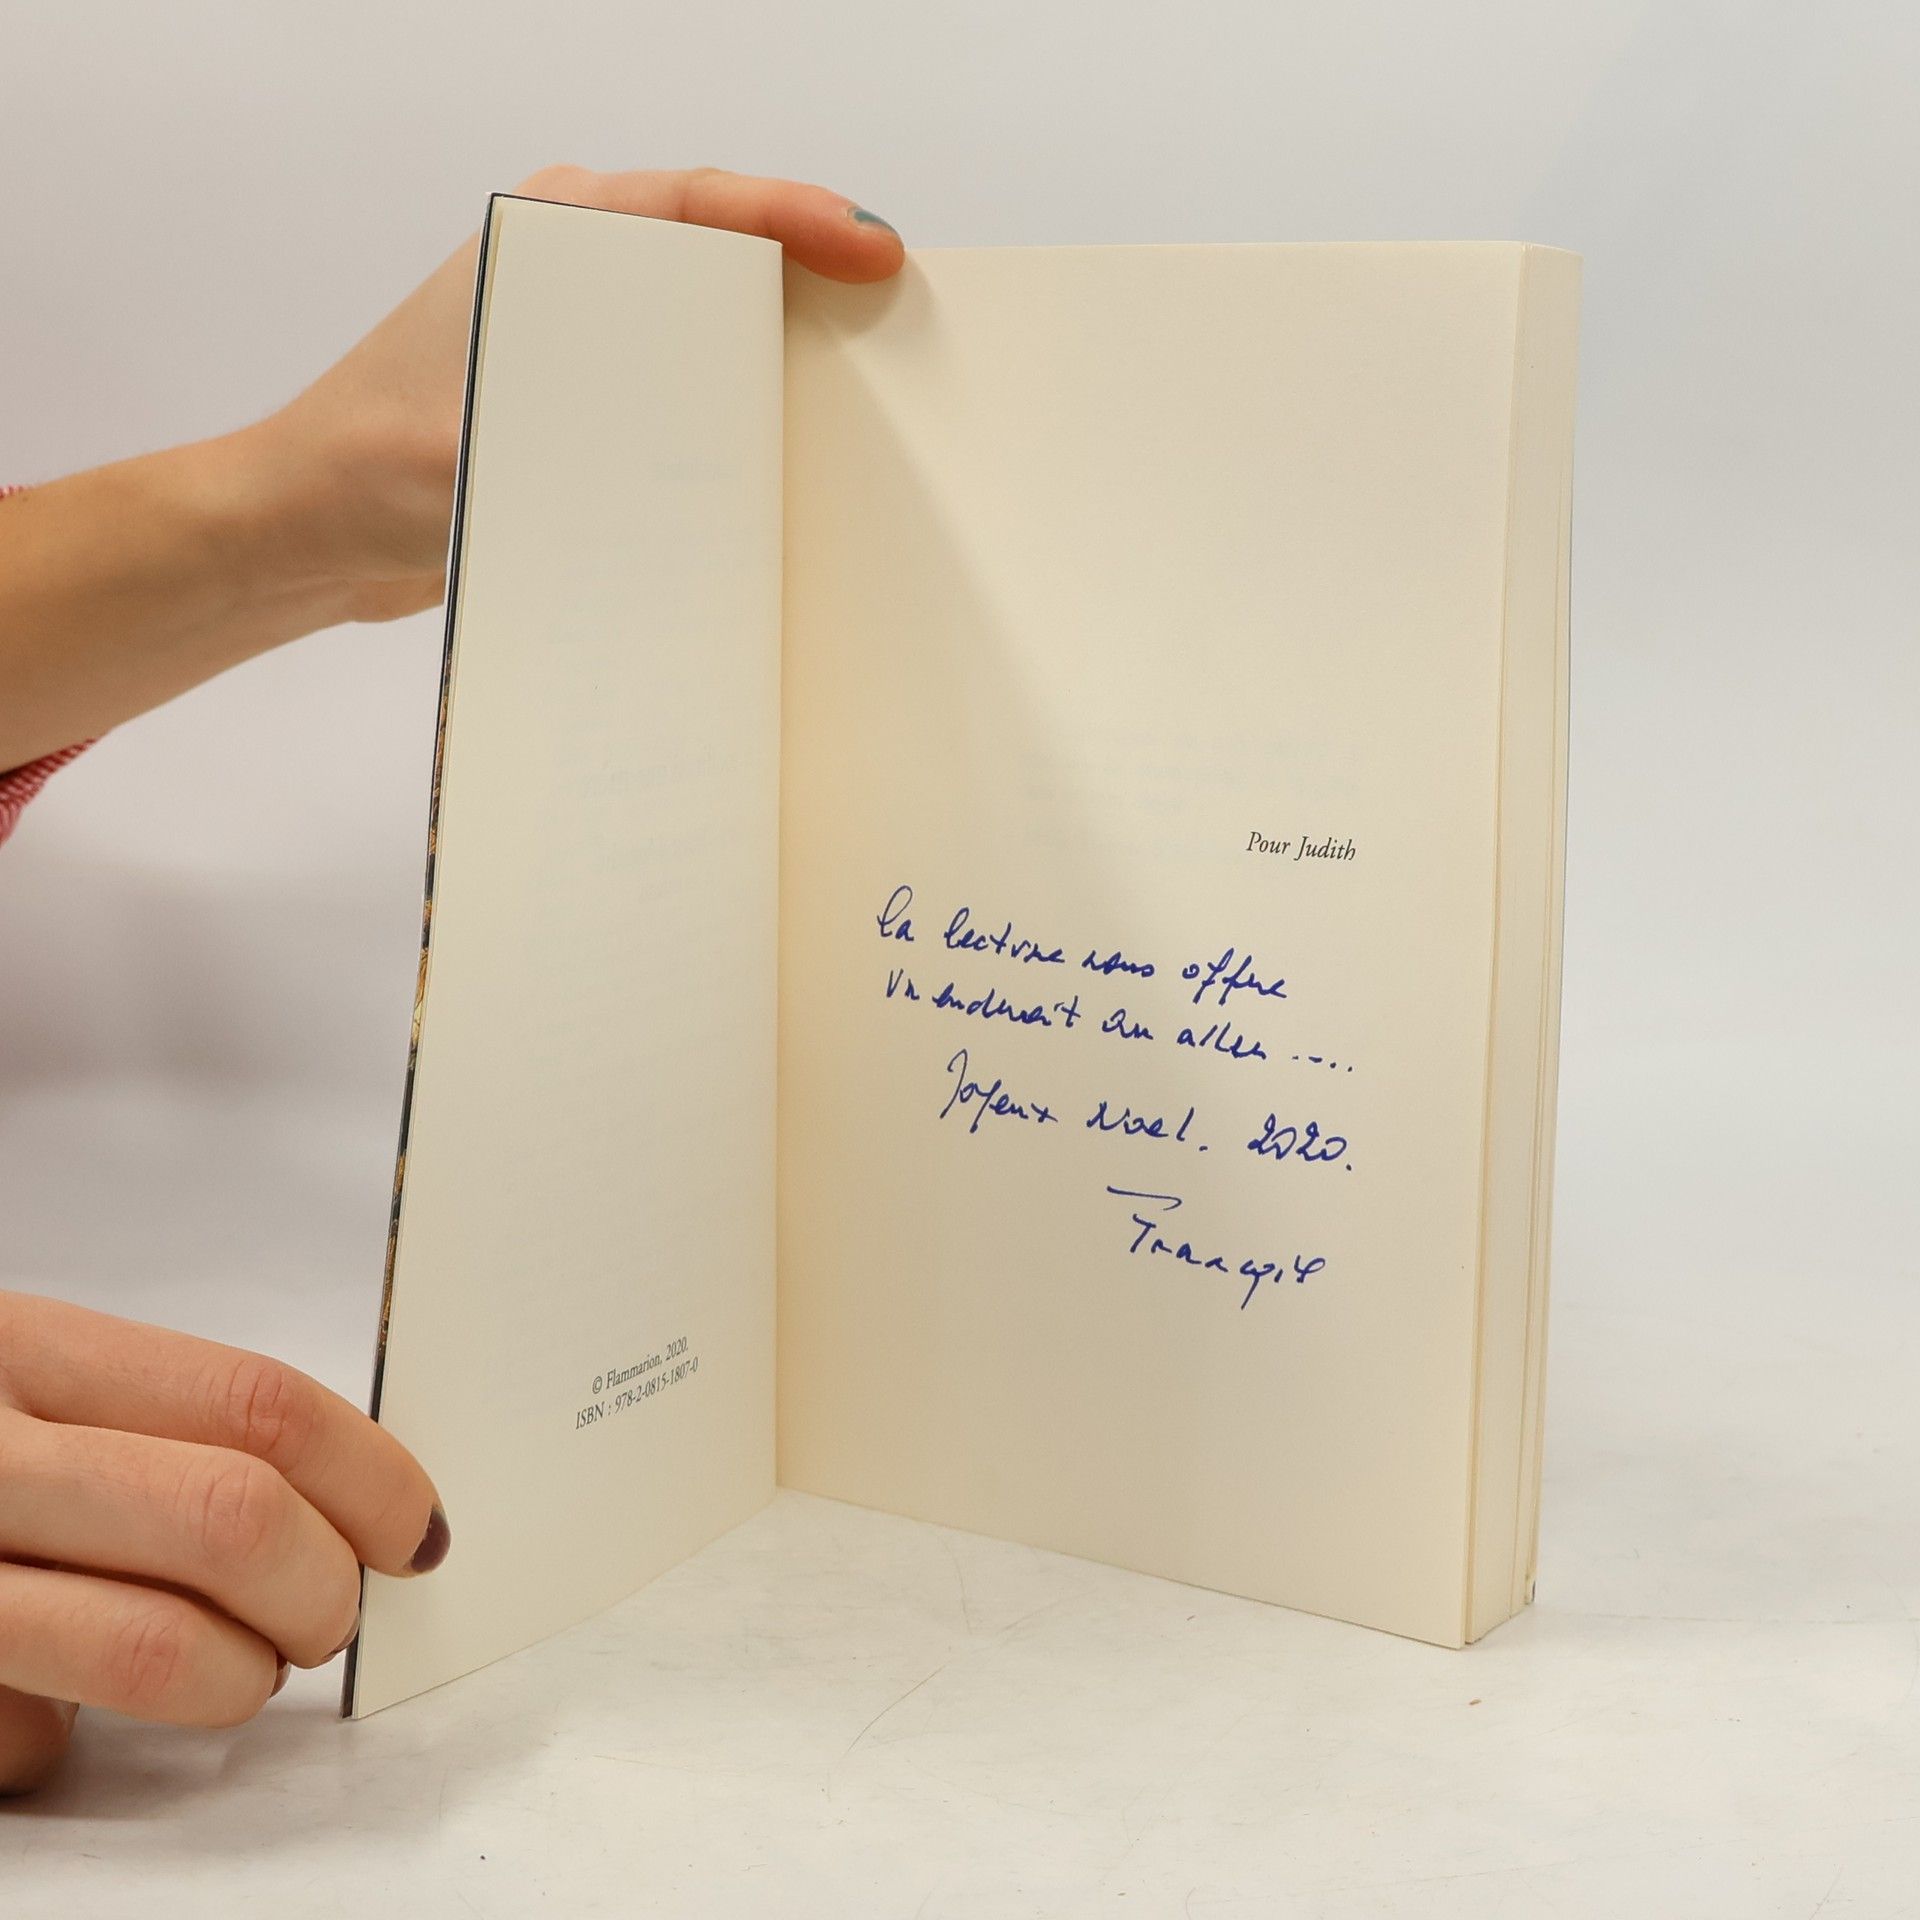 © Flammarion, 2020.
ISBN : 978-2-0815-1807-0
Pour Judith
La lecture nous offre
Un endroit où aller ....
Joyeux Noel. 2020.
François